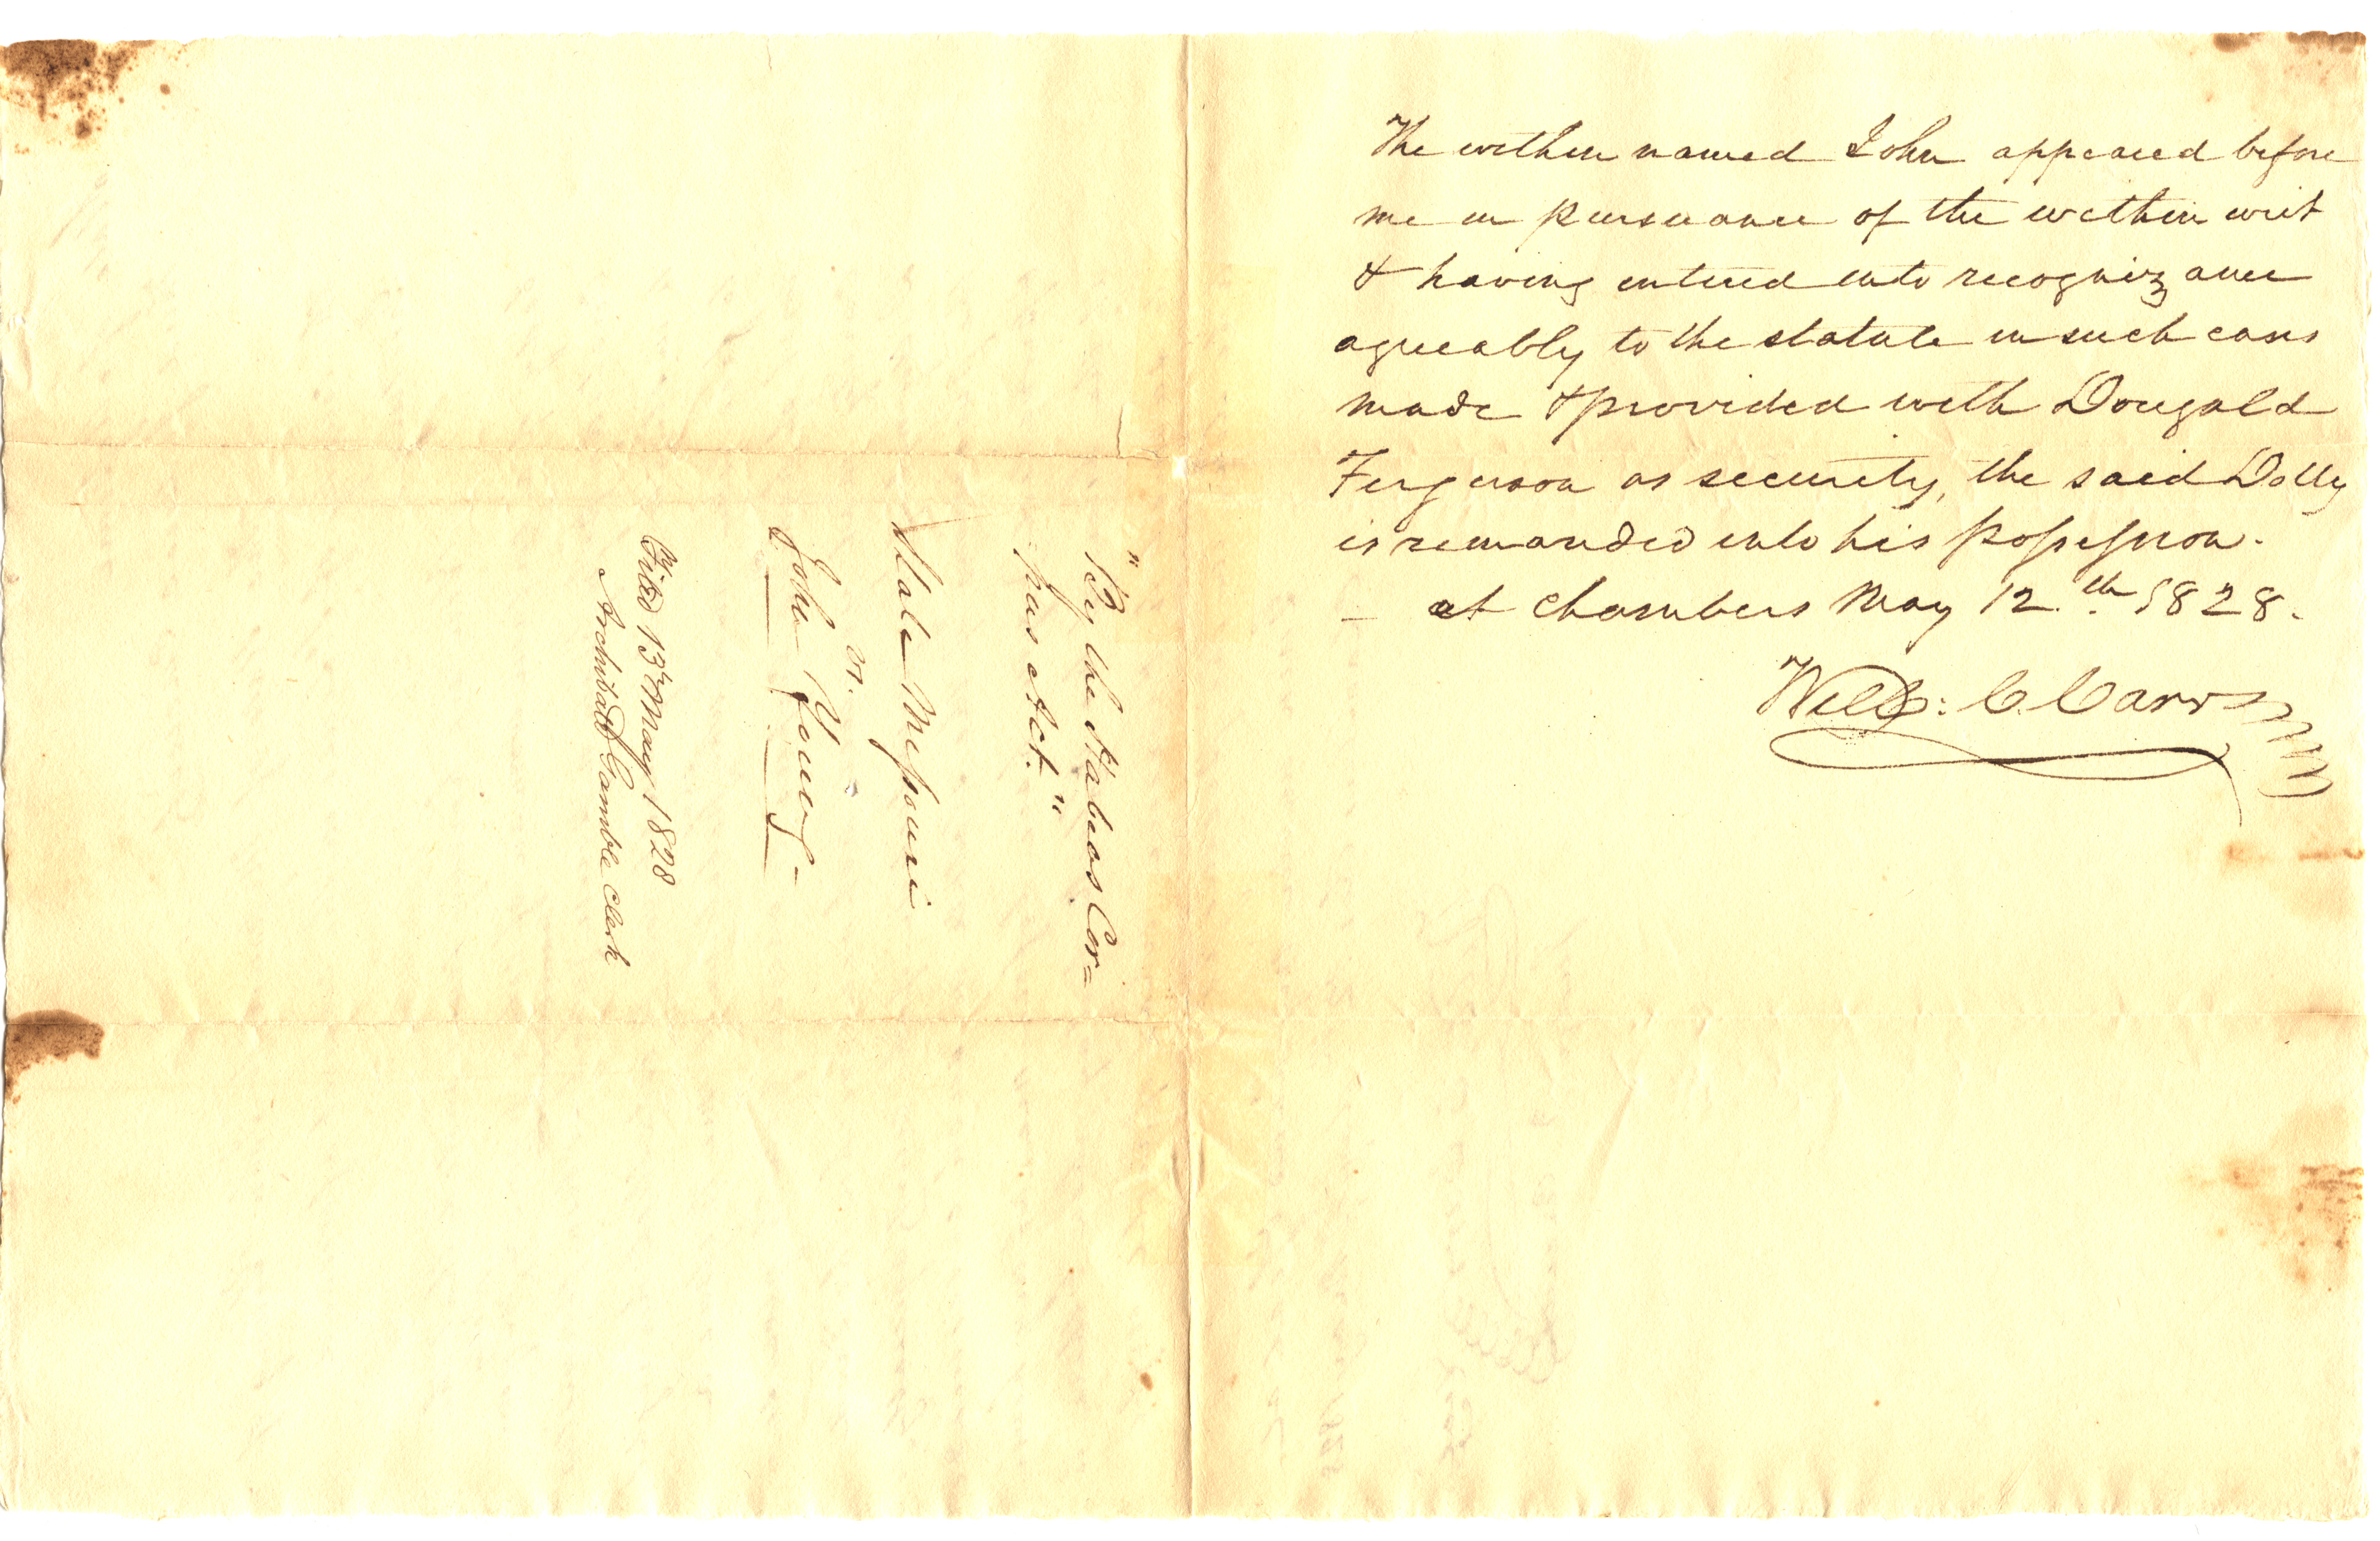 The within named John appeared before
me in pursuance of the within writ
& having entered into recognizance
agreeably to the statute in such cases
made & provided with Dougald
Ferguson as security, the said Dolly
is remanded into his possession.
— at Chambers May 12.th 1828.
Will: C. Carr
"By the Habeas Cor=
pus Act."
State Missouri
vs.
John Young -
Filed 13th May 1828
Archibald Gamble Clerk